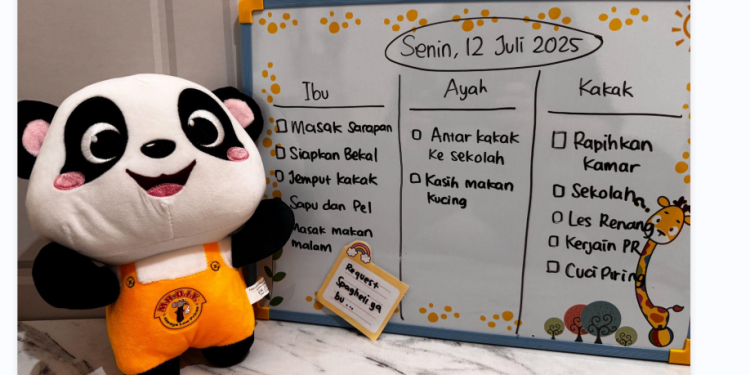 Senin, 12 Juli 2025
Ibu
Masak Sarapan
Siapkan Bekal
Jemput kakak
Sapu dan Pel
Masak makan
malam
Ayah
Antar kakak
ke sekolah
Kasih makan
kucing
Kakak
Rapihkan
Kamar
Sekolah
Les Renang
Kerjain PR
Cuci Piring
Request
Spagheti ya
bu...
MR.D.I.Y.